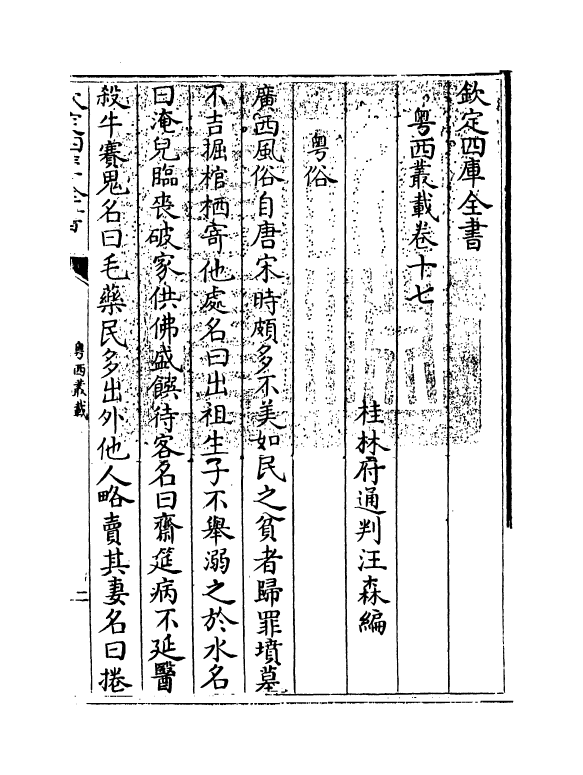 欽定四庫全書
粤西叢載卷十七
桂林府通判汪森編
粤俗
廣西風俗自唐宋時頗多不美如民之貧者歸罪墳墓
不吉掘棺栖寄他處名曰出祖生子不舉溺之於水名
曰淹兒臨喪破家供佛盛饌待客名曰齋筵病不延醫
殺牛賽鬼名曰毛藥民多出外他人略賣其妻名曰捲
欽定四庫全書
粤西叢載